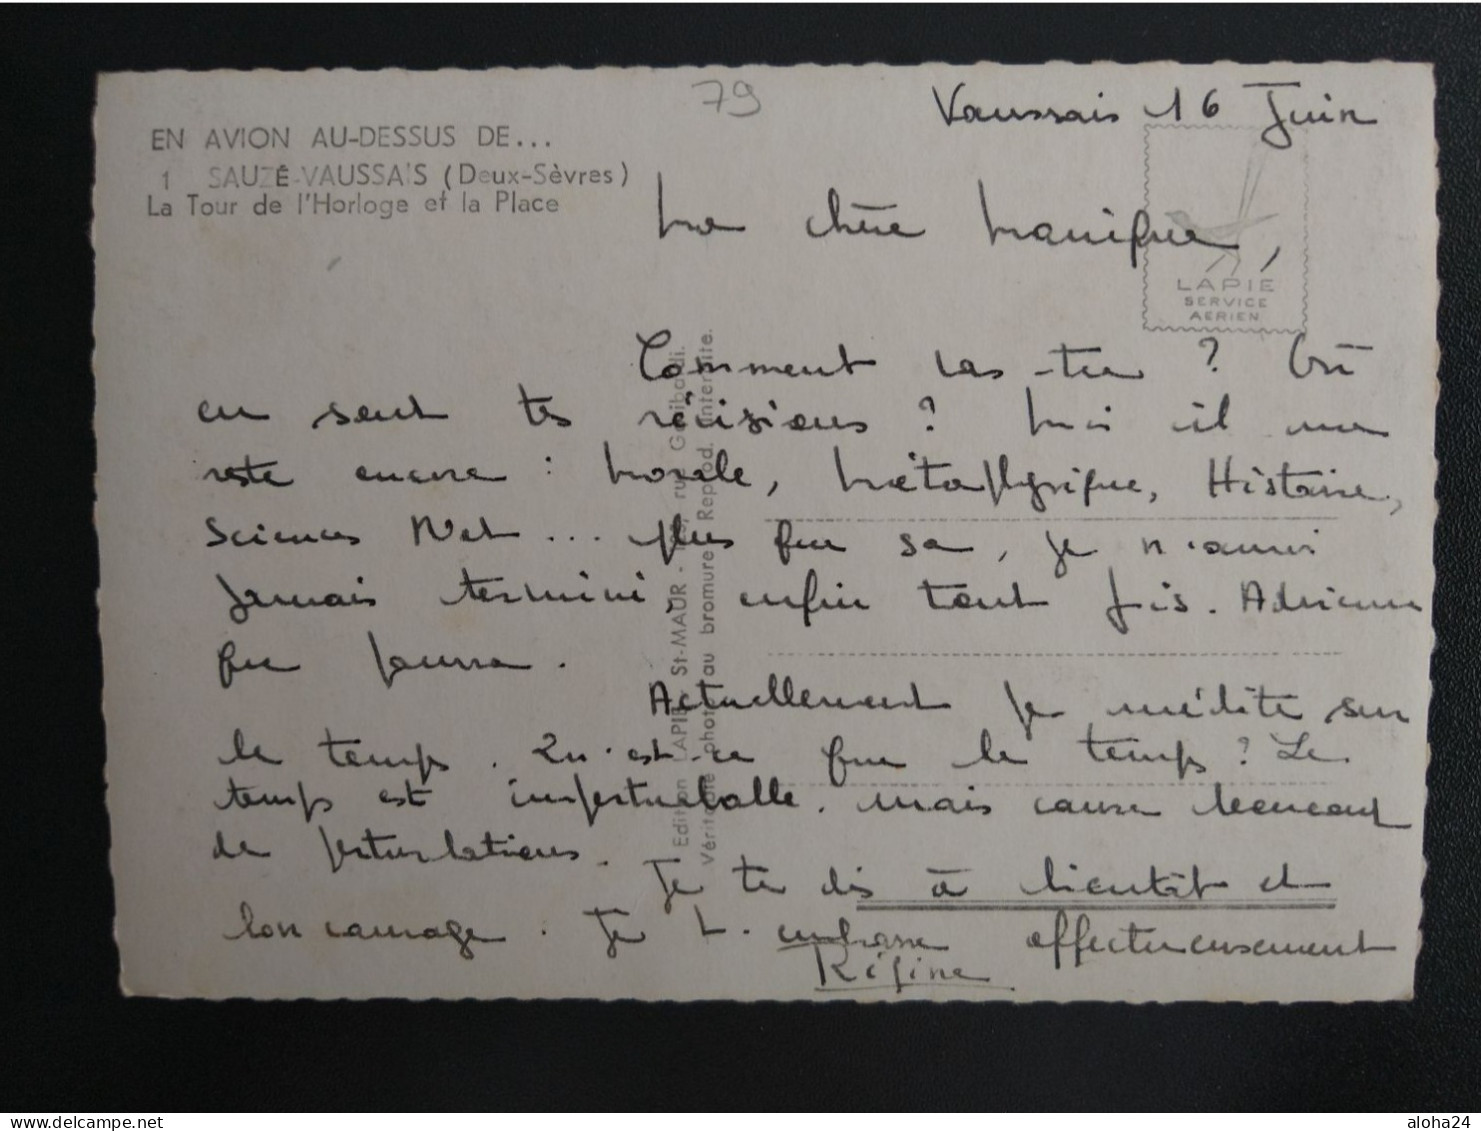 79
Vaussais 16 Juin
EN AVION AU-DESSUS DE...
1 SAUZÉ-VAUSSAIS (Deux-Sèvres)
La Tour de l'Horloge et la Place
LAPIE
SERVICE
AERIEN
Ma chère Monique,
Comment vas-tu ? Où
en sont tes révisions ? Moi il me
reste encore : Morale, Métaphysique, Histoire,
Sciences Nat ... plus que sa, je n'aurai
jamais terminé, enfin tant pis. Adviene
que pourra.
Actuellement je médite sur
le temps. Qu'est-ce que le temps ? Le
temps est imperturbable. mais cause beaucoup
de perturbations.
Je te dis à bientôt et
bon courage. Je t'embrasse affectueusement
Régine
Edition LAPIE - St-MAUR - rue Garibaldi.
Véritable photo au bromure Reprod. interdite.
aloha24
delcampe.net